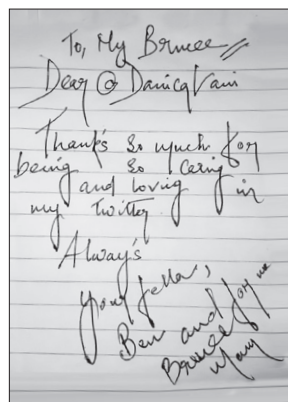 To, My Brucee
Dear @ DanicaVani
Thank's so much for
being so caring
and loving in
my Twitty
Always
Your fella,
Ben and
Brucee